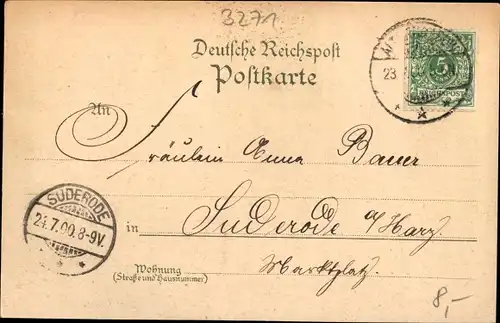 3271
Deutsche Reichspost
Postkarte
5
REICHSPOST
23.
An
Fräulein Anna Bauer
SUDERODE
24.7.00.8-9V.
in Suderode a/Harz
Marktplatz.
Wohnung
(Straße und Hausnummer)
8,-